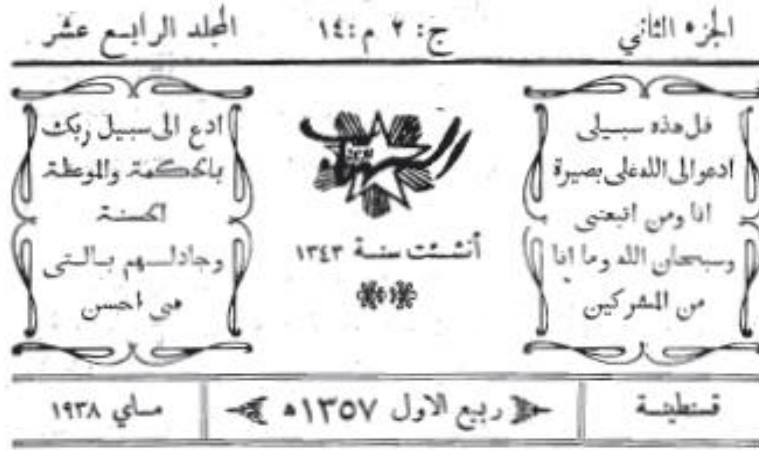 الجزء الثاني
ج: ٢ م: ١٤
المجلد الرابع عشر
قل هذه سبيلى
ادعو الى الله على بصيرة
انا ومن اتبعنى
وسبحان الله وما انا
من المشركين
أنشئت سنة ١٣٤٣
ادع الى سبيل ربك
بالحكمة والموعظة
الحسنة
وجادلهم بالتى
هى احسن
قسنطينة
ربيع الاول ١٣٥٧ﻫ
ماي ١٩٣٨